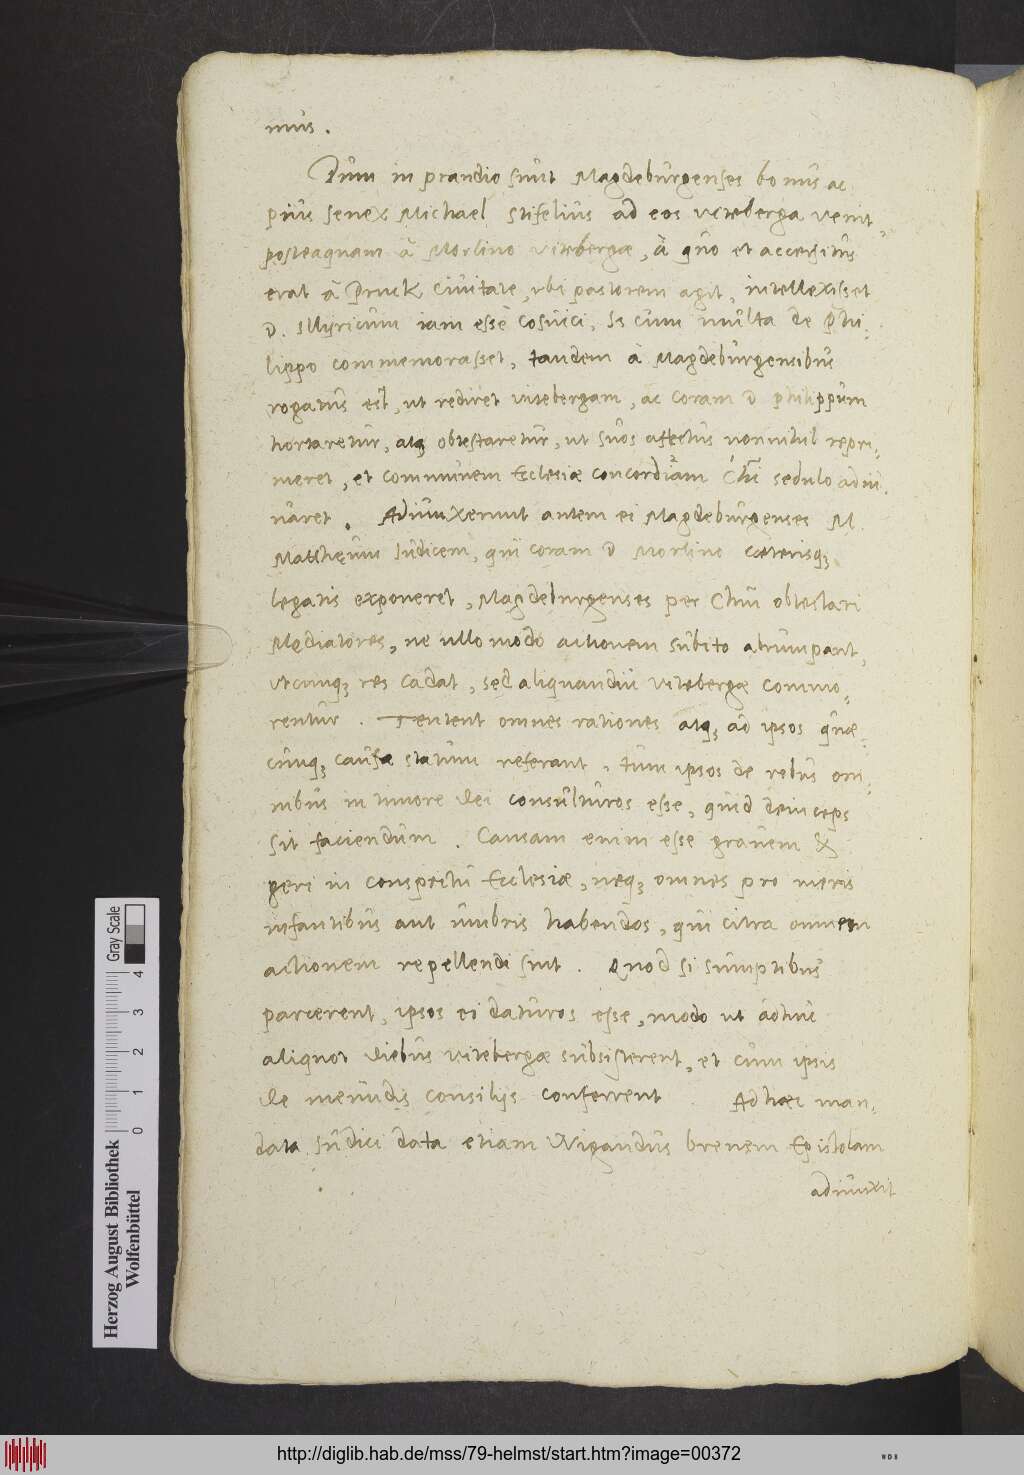 mus.
Dum in prandio sunt Magdeburgenses bonus ac
pius senex Michael Stifelius ad eos Viteberga venit,
posteaquam à Morlino Vitebergae, à quo et accersitus
erat à Pruck civitate, vbi pastorem agit, intellexisset
D. Illyricum iam esse Cosuici, Is cum multa de Phi-
lippo commemorasset, tandem à Magdeburgensibus
rogatus est, ut rediret Vitebergam, ac coram D Philippum
hortaretur, atq; obtestaretur, ut suos affectus nonnihil repri-
meret, et communem Ecclesiae concordiam Chri sedulo adiu-
uaret. Adiunxerunt autem ei Magdeburgenses M.
Matthęum Iudicem, qui coram D Morlino caeterisq;
legatis exponeret, Magdeburgenses per Chrm obtestari
Mędiatores, ne ullo modo actionem subito abrumpant,
utcunq; res cadat, sed aliquandiu Vitebergae commo-
rentur. Tentent omnes rationes atq; ad ipsos quae-
cunq; causae statum referant, tum ipsos de rebus om-
nibus in timore Dei consulturos esse, quid deinceps
sit faciendum. Causam enim esse gravem &
geri in conspectu Ecclesiae, neq; omnes pro meris
infantibus aut umbris habendos, qui citra omnem
actionem repellendi sint. Quod si sumptibus
parcerent, ipsos ei daturos esse, modo ut adhuc
aliquot diebus Vitebergae subsisterent, et cum ipsis
de ineundis consilijs conferrent. Ad haec man-
data Iudici data etiam Wigandus breuem Epistolam
adiunxit
Herzog August Bibliothek
Wolfenbüttel
Gray Scale
0 1 2 3 4
http://diglib.hab.de/mss/79-helmst/start.htm?image=00372
WDB